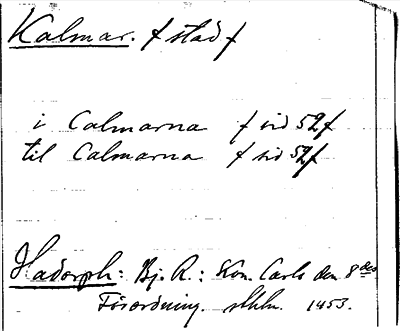 Kalmar. f stad f
i Calmarna f sid 52 f
til Calmarna f sid 52 f
Hadorph: Bj. R.: Kon. Carls den 8des
Förordning. sthlm. 1453.